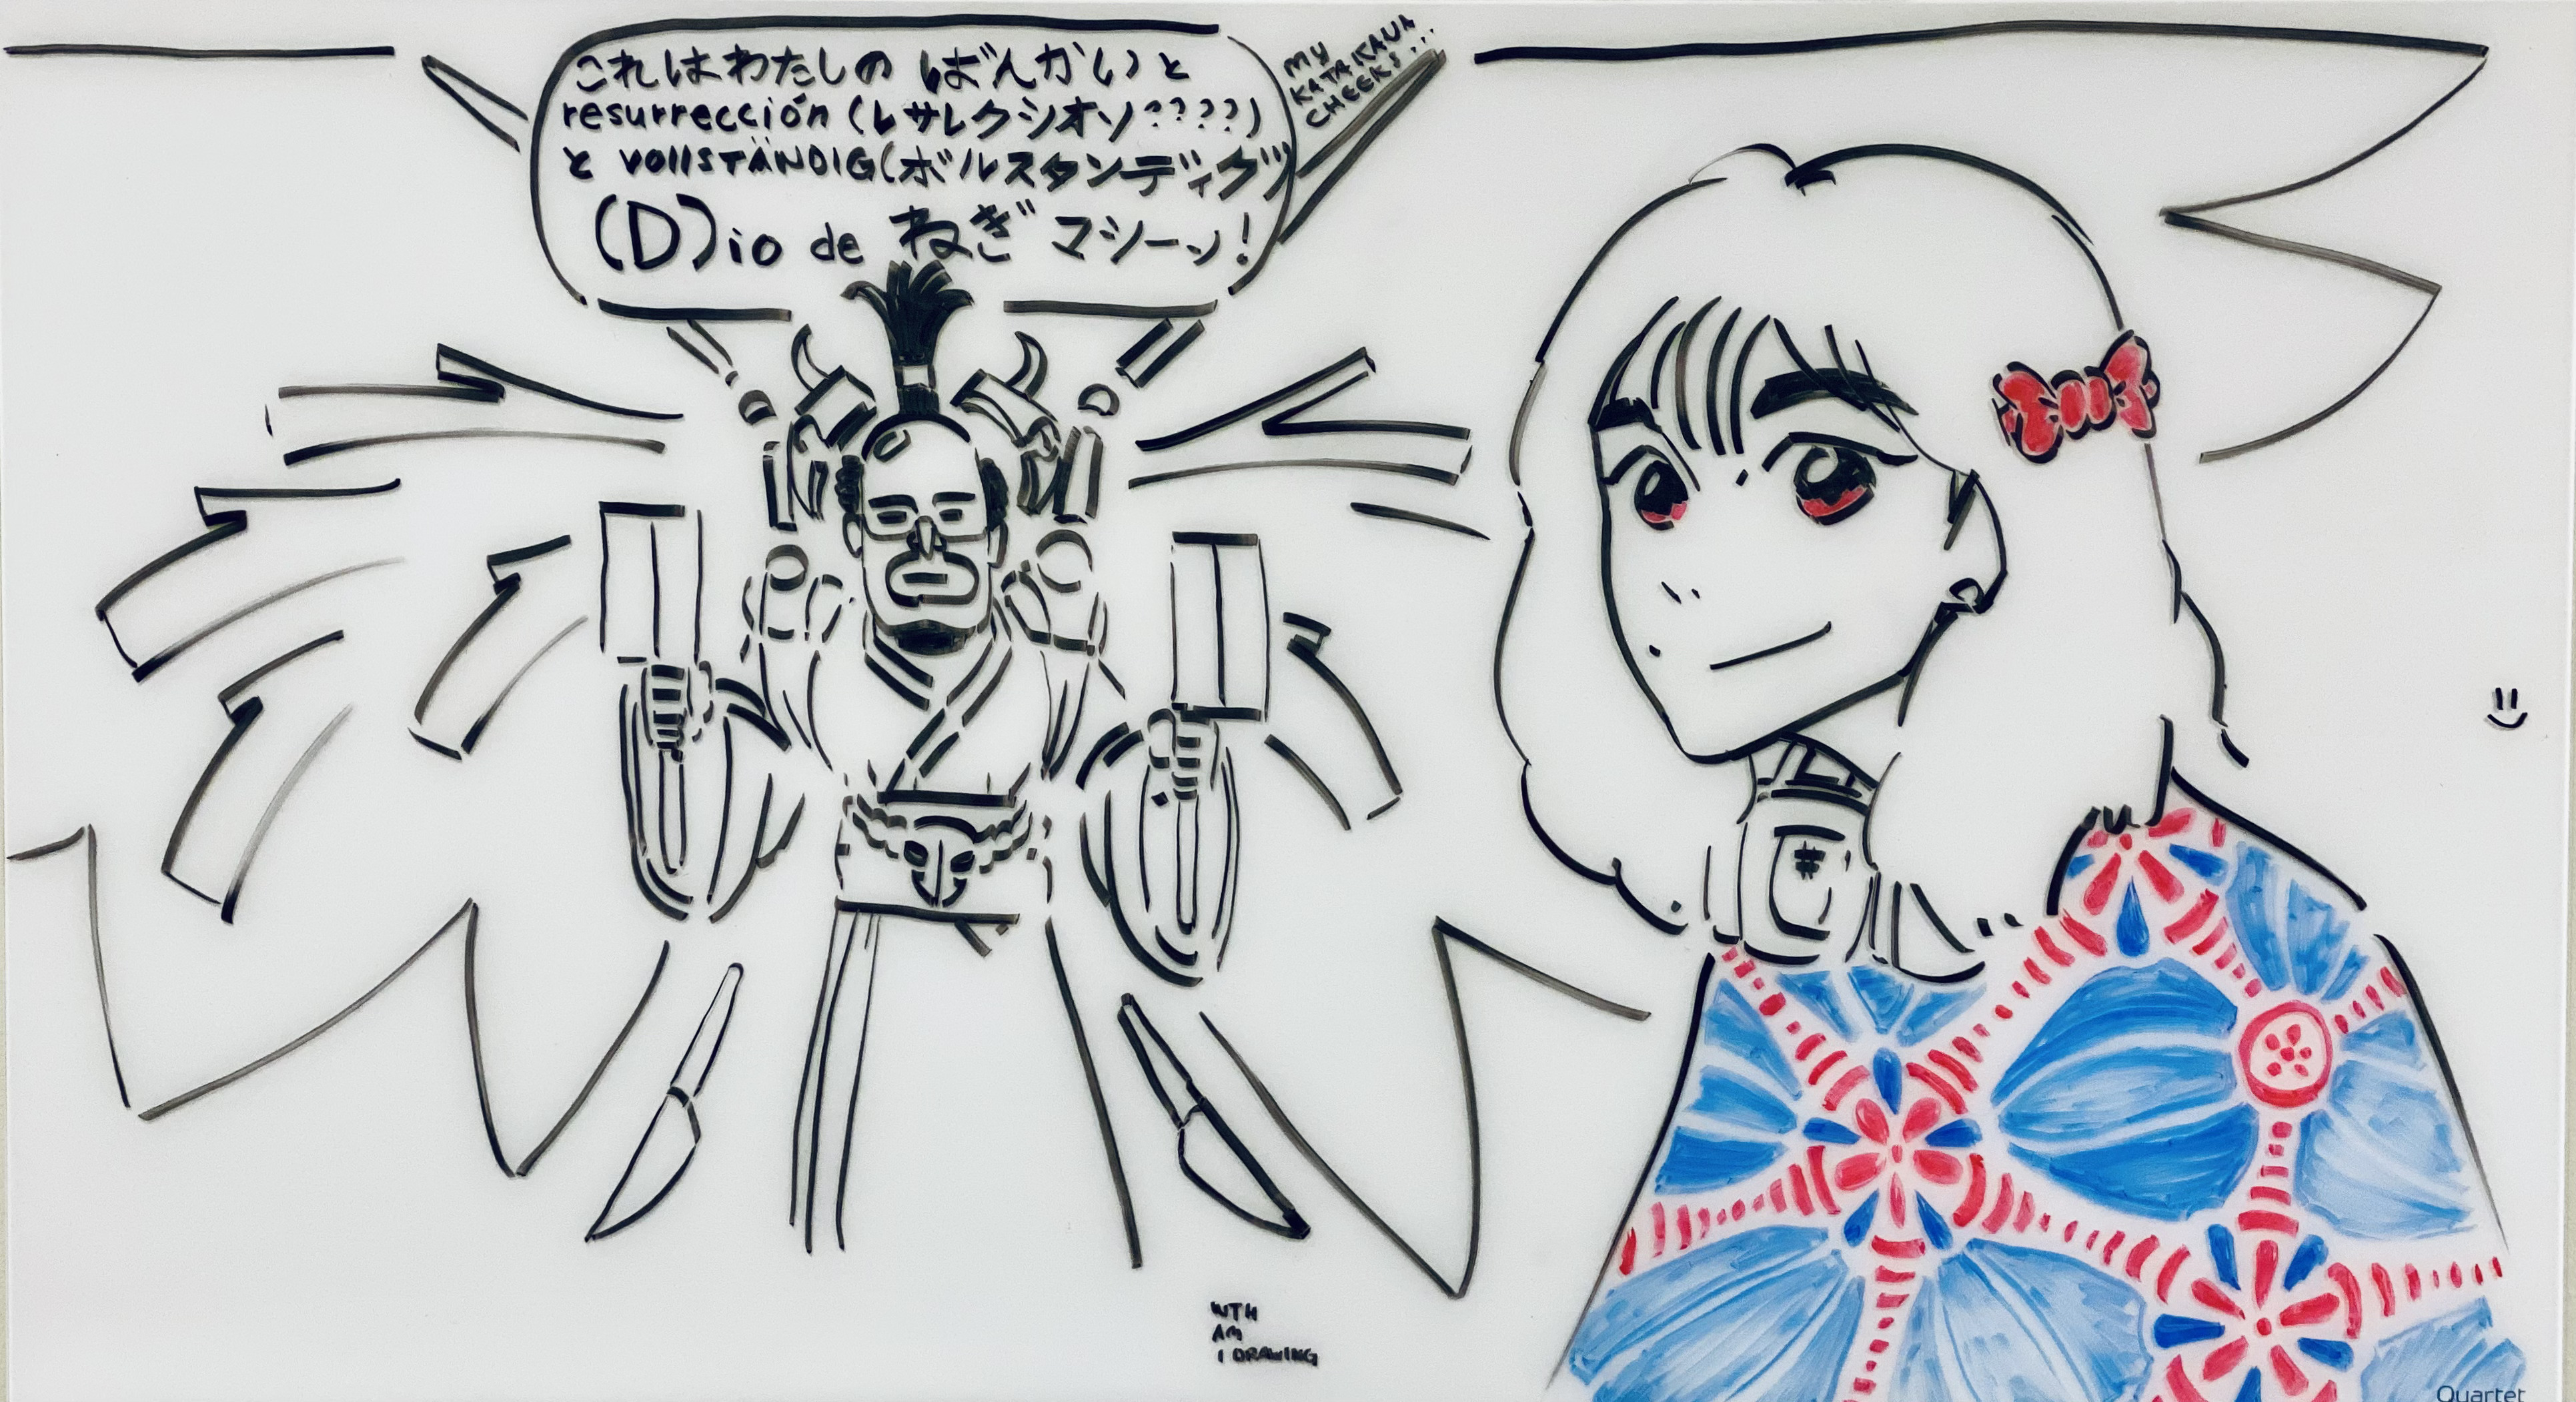 これはわたしの ばんかいと
resurrección (レサレクシオソ????)
と VOllSTÄNDIG(ボルスタンディグ)
(D)io de ねぎ マシーン!
MY
KATAKANA
CHEEKS...
#
WTH
AM
I DRAWING
Quartet